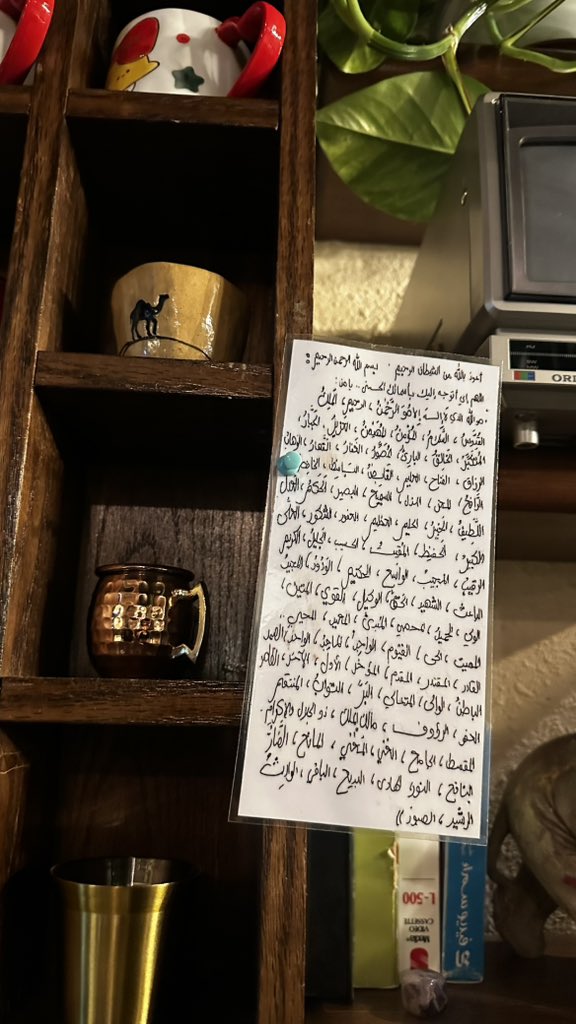 أعوذ بالله من الشيطان الرجيم بسم الله الرحمن الرحيم
اللهم إني أتوجه إليك بأسمائك الحسنى.. يا من:
هو الله الذي لا إله إلا هو الرَّحْمَنُ، الرحيم، المَلِكُ
القُدُّوسُ، السَّلامُ، المُؤمِنُ، المُهَيْمِنُ، العزيزُ، الجَبَّارُ،
المُتَكَبِّرُ، الخَالِقُ، البارِئُ، المُصَوِّرُ، الغفارُ، القَهَّارُ، الوهابُ
الرزاق، الفتاح، العليم، القابِضُ، الباسِطُ، الخافِضُ
الرَّافِعُ، المعز، المذل، السميعُ، البصير، الحَكَمُ، العَدْلُ
اللَّطِيفُ، الخَبِيرُ، الحليم، العظيم، الغفور، الشكور، العلي
الكبيرُ، الحفيظ، المقيتُ، الحسيب، الجليلُ، الكريم
الرقيبُ، المجيبُ، الواسِع، الحكيم، الوَدُودُ، المجيدُ
الباعث، الشهيد، الحَقُّ، الوكيل، القوي، المتين،
الولي، الحميد، المحصي، المُبدِئُ، المعيد، المحيي،
المميت، الحي، القيوم، الواجد، الماجد، الواحد، الصمد
القادر، المقتدر، المقدم، المؤخر، الأول، الآخر، الظاهر
الباطنُ، الوالي، المتعالي، البَرُّ، التوابُ، المنتقم
العفو، الرؤوف، مالك الملك، ذو الجلال والإكرام،
المقسط، الجامع، الغني، المغني، المانع، الضَّارُّ
النافع، النور، الهادي، البديع، الباقي، الوارِثُ
الرشيد، الصبور))
L-500
VIDEO
CASSETTE
Media
ORI